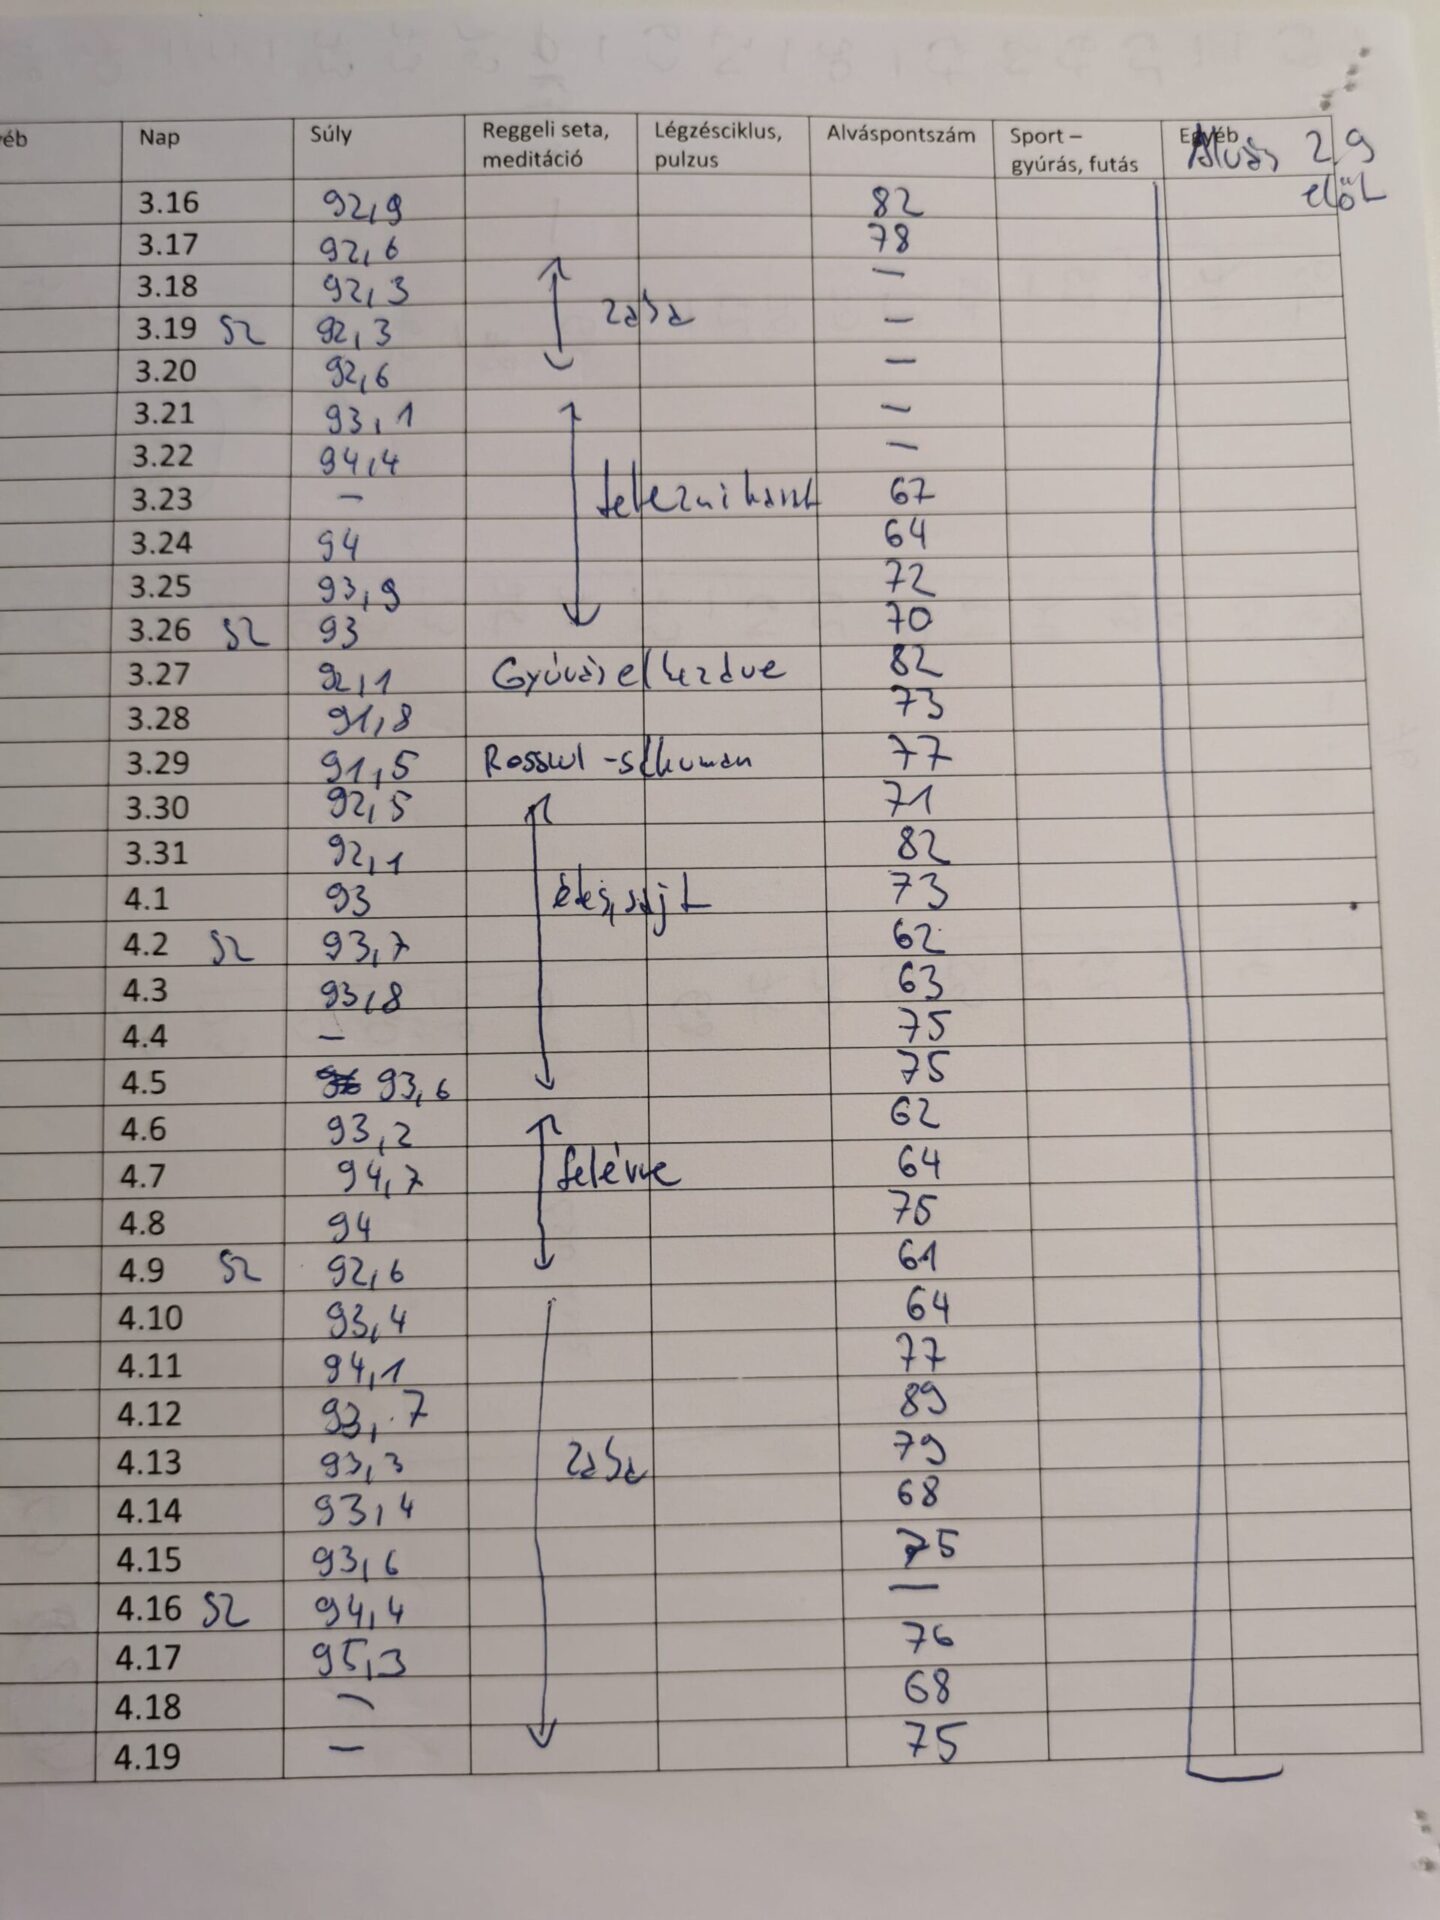 éb Nap Súly Reggeli seta, meditáció Légzésciklus, pulzus Alváspontszám Sport – gyúrás, futás Egyéb Alvás 29 előtt
3.16 92,9 82
3.17 92,6 78
3.18 92,3 –
3.19 SZ 92,3 zaba –
3.20 92,6 –
3.21 93,1 –
3.22 94,4 –
3.23 – 67
3.24 94 64
3.25 93,9 72
3.26 SZ 93 70
3.27 92,1 Gyúrás elkezdve 82
3.28 91,8 73
3.29 91,5 Rosszul -schuman 77
3.30 92,5 71
3.31 92,1 82
4.1 93 édes, sajt 73
4.2 SZ 93,7 62
4.3 93,8 63
4.4 – 75
4.5 93,6 75
4.6 93,2 62
4.7 94,7 64
4.8 94 75
4.9 SZ 92,6 61
4.10 93,4 64
4.11 94,1 77
4.12 93,7 89
4.13 93,3 zaba 79
4.14 93,4 68
4.15 93,6 75
4.16 SZ 94,4 –
4.17 95,3 76
4.18 – 68
4.19 – 75